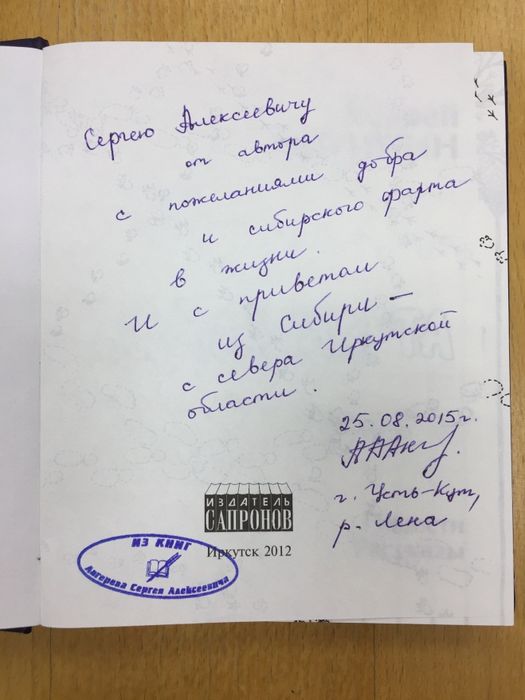 Сергею Алексеевичу
от автора
с пожеланиями добра
и сибирского фарта
в жизни.
И с приветом
из Сибири –
с севера Иркутской
области.
25.08.2015г.
г. Усть-Кут,
р. Лена
ИЗДАТЕЛЬ
САПРОНОВ
Иркутск 2012
ИЗ КНИГ
Ангерева Сергея Алексеевича